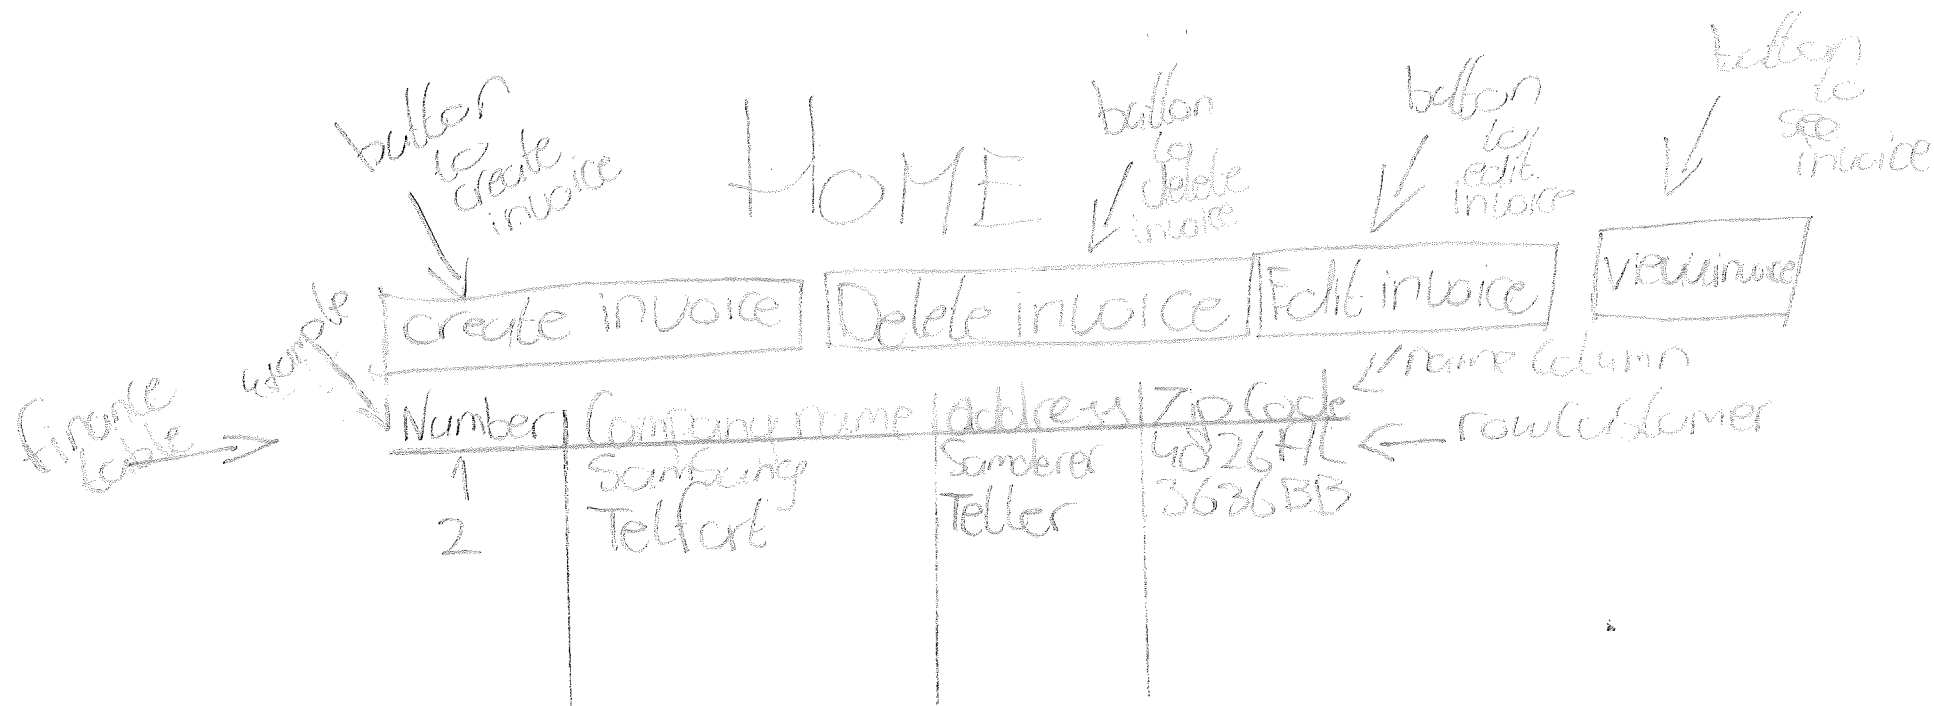 button
to
create
invoice
HOME
button
to
delete
invoice
button
to
edit
invoice
button
to
see
invoice
create invoice
Delete invoice
Edit invoice
View invoice
example
finance
table
name Column
row customer
Number Company name address Zip Code
1 Samsung Samderer
2 Telfort Teller 3636BB